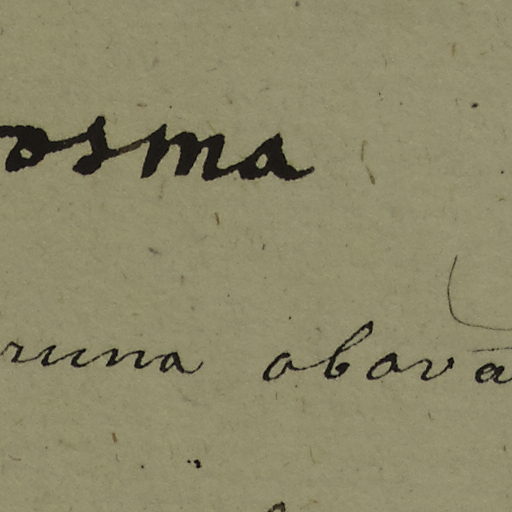 osma
runa obova